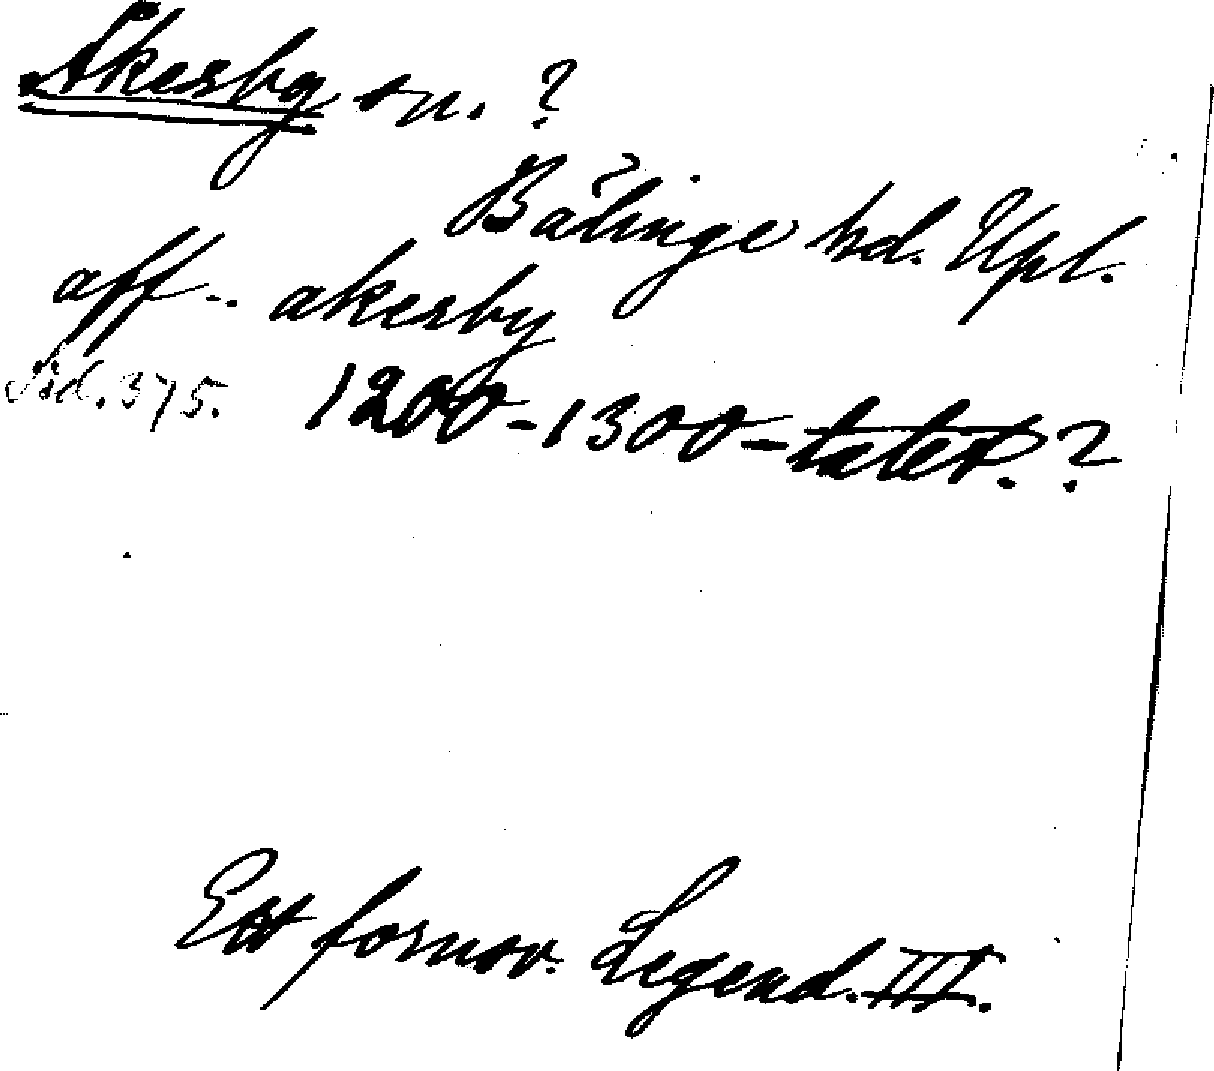 Åkerby sn. ?
Bälinge hd. Upl.
aff.. akerby
Sid. 375. 1200-1300-talet. ?
Ett fornsv. Legend. III.